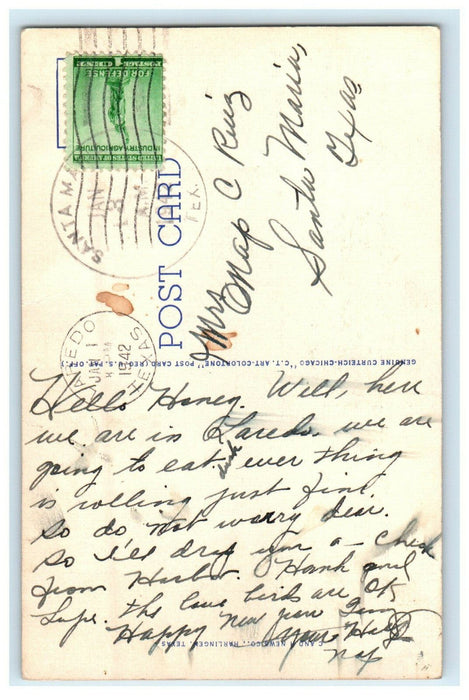 UNITED STATES POSTAGE
INDUSTRY·AGRICULTURE
FOR DEFENSE
1 CENT 1
SANTA MA
JAN
3
A.M.
TEX.
POST CARD
Mrs
Nap C Ruiz
Santa Maria,
Texas
GENUINE CURTEICH-CHICAGO "C.T. ART-COLORTONE" POST CARD (REG. U.S. PAT. OFF.)
LAREDO
JAN 1
1942
TEXAS
Hello Honey. Well, here
we are in Laredo. we are
going to eat every thing
is rolling just fine.
so do not worry dear.
so I'll drop you a
from Hank and
Lupe. the love birds are OK
Happy New year
Your
Nap
C AND H NEWS CO., HARLINGEN, TEXAS